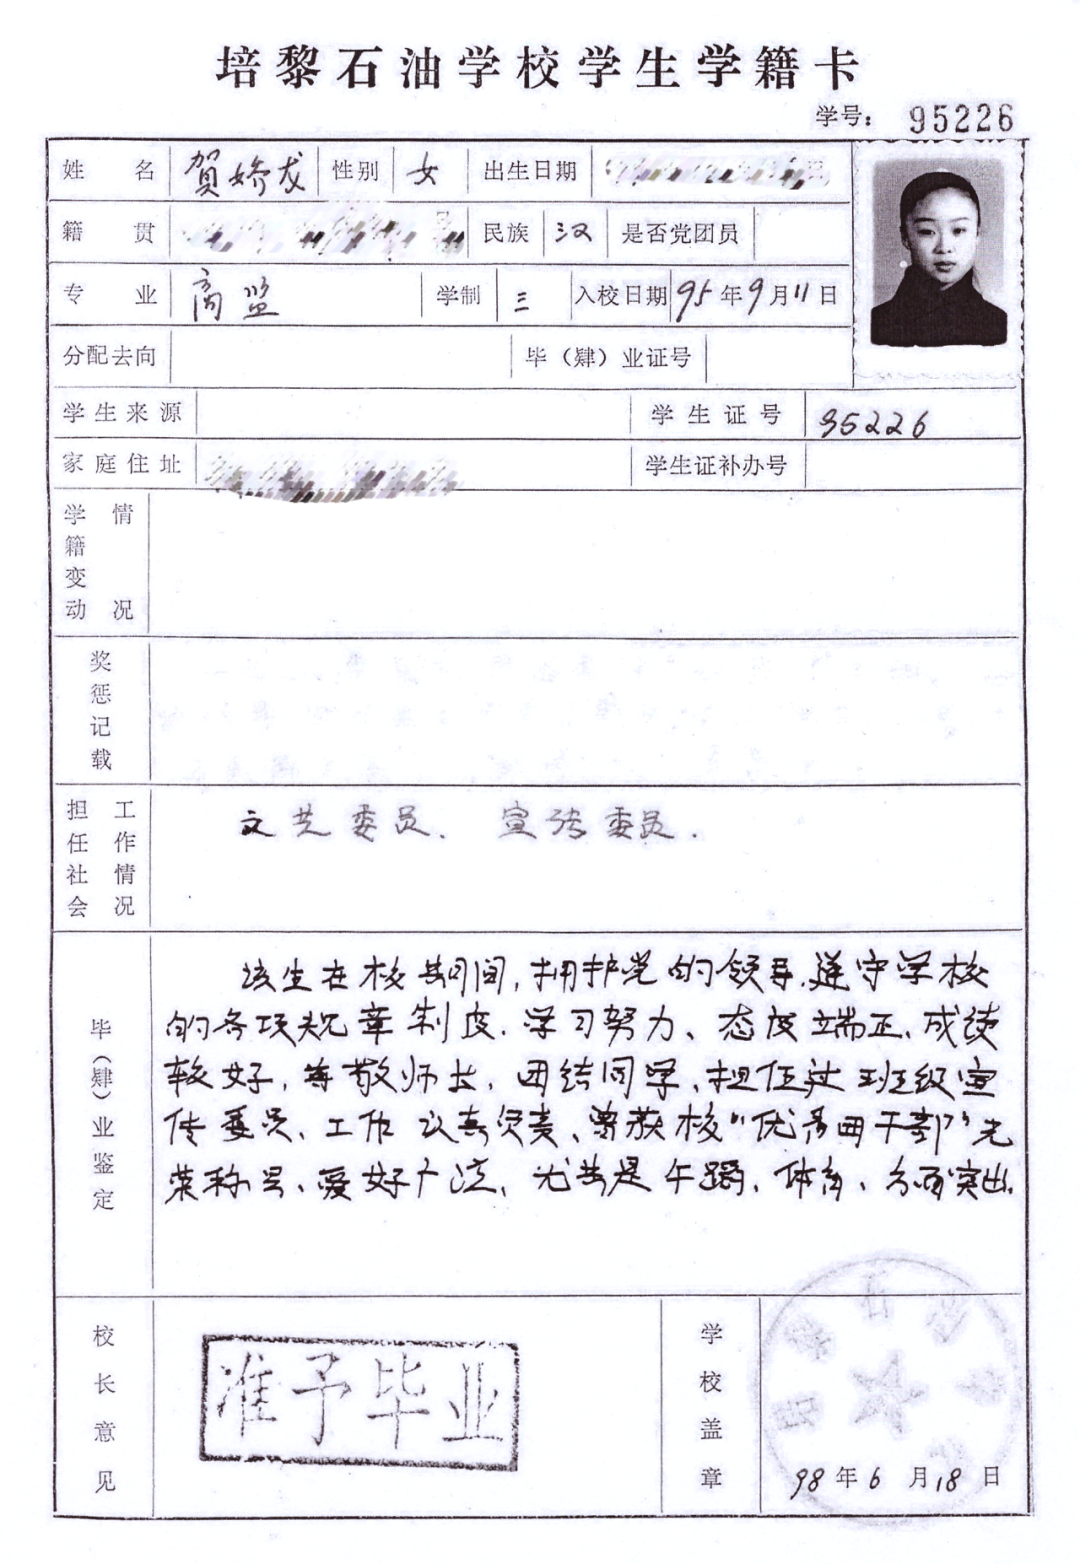 培黎石油学校学生学籍卡
学号: 95226
姓名 贺娇龙 性别 女 出生日期
籍贯 民族 汉 是否党团员
专业 商监 学制 三 入校日期 95年9月11日
分配去向 毕（肄）业证号
学生来源 学生证号 95226
家庭住址 学生证补办号
学籍变动情况
奖惩记载
担任社会工作情况 文艺委员、宣传委员.
毕（肄）业鉴定
该生在校期间,拥护党的领导.遵守学校
的各项规章制度.学习努力、态度端正.成绩
较好,尊敬师长,团结同学、担任过班级宣
传委员、工作认真负责、曾获校“优秀团干部”光
荣称号、爱好广泛、尤其是午蹈、体育、方面突出.
校长意见 准予毕业
学校盖章 98年6月18日